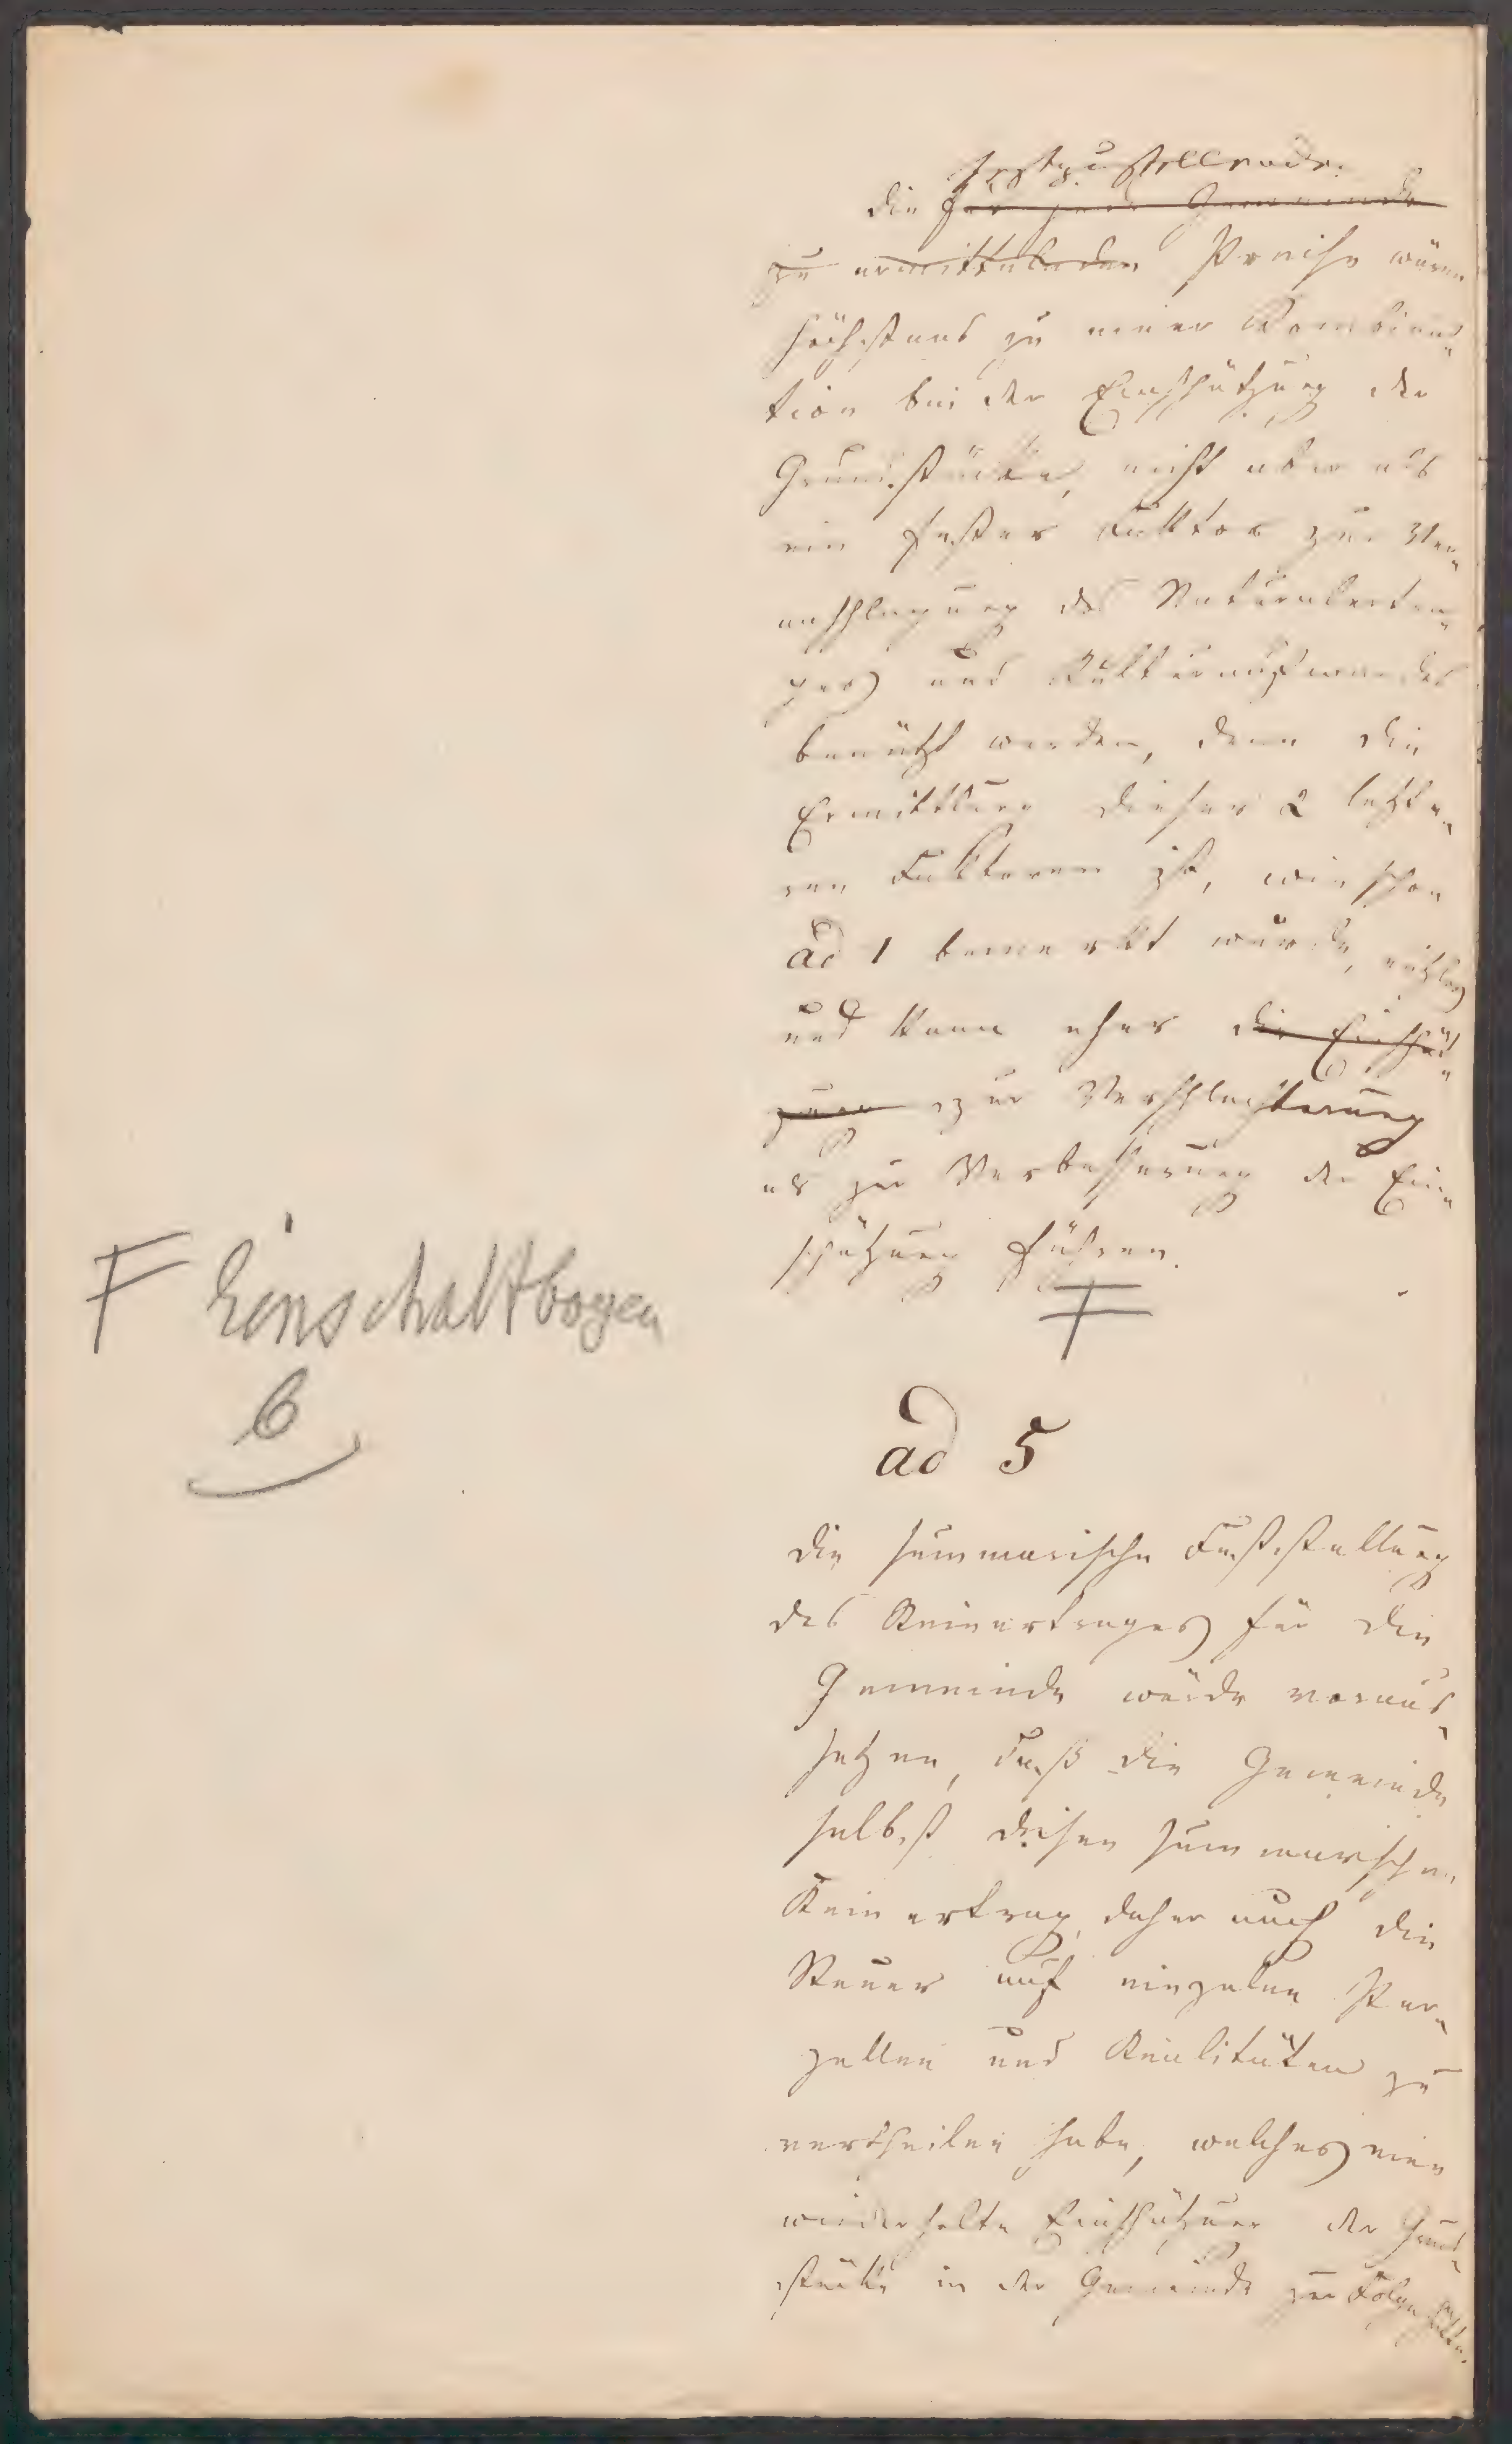 festzustellenden
die für jede Gemeinde
zu ermittelnden Preise wären
höchstens zu einer Kombina-
tion bei der Einschätzung der
Grundstücke, nicht aber als
ein fester Faktor zur Ver-
anschlagung des Naturalertra-
ges und Kulturaufwandes
benützt werden, denn die
Ermittlung dieser 2 letzte-
ren Faktoren ist, wie schon
ad 1 bemerkt wurde,
und kann eher die Einschät-
zung zur Verschlechterung
als zur Verbesserung der Ein-
schätzung führen.
F Einschaltbogen
6
ad 5
Die summarische Feststellung
des Reinertrages für die
Gemeinde würde voraus-
setzen, daß die Gemeinde
selbst diesen summarischen
Reinertrag, daher auch die
Steuer auf einzelne Par-
zellen und Realitäten zu
vertheilen habe, welches eine
wiederholte Einschätzung der Grund-
stücke in der Gemeinde zur Folge hätte.